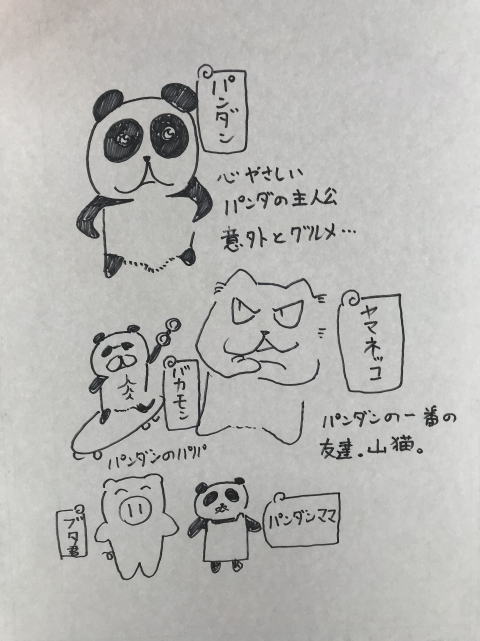 パンダン
心やさしい
パンダの主人公
意外とグルメ…
ヤマネッコ
パンダンの一番の
友達。山猫。
バカモン
パンダンのパパ
ブタ君
パンダンママ